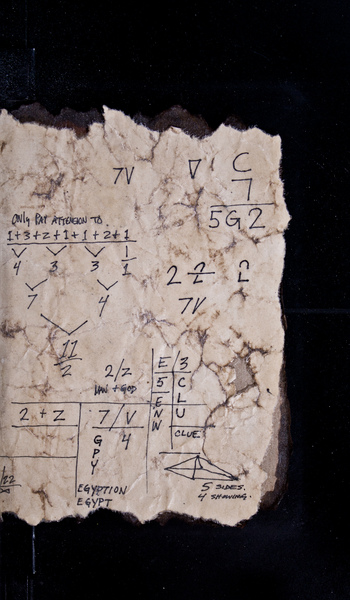 7V ∇ C
7
5G2
ONLY PAY ATTENSION TO
1+3+2+1+1+2+1
4 3 3 1
1
2 2
7V
7 4
11
2
2/Z
LAW + GOD
E/3
5 C
E L
N U
W CLUE.
2 + Z 7/V
G 4
P
Y
5 SIDES.
4 SHOWING.
EGYPTION
EGYPT